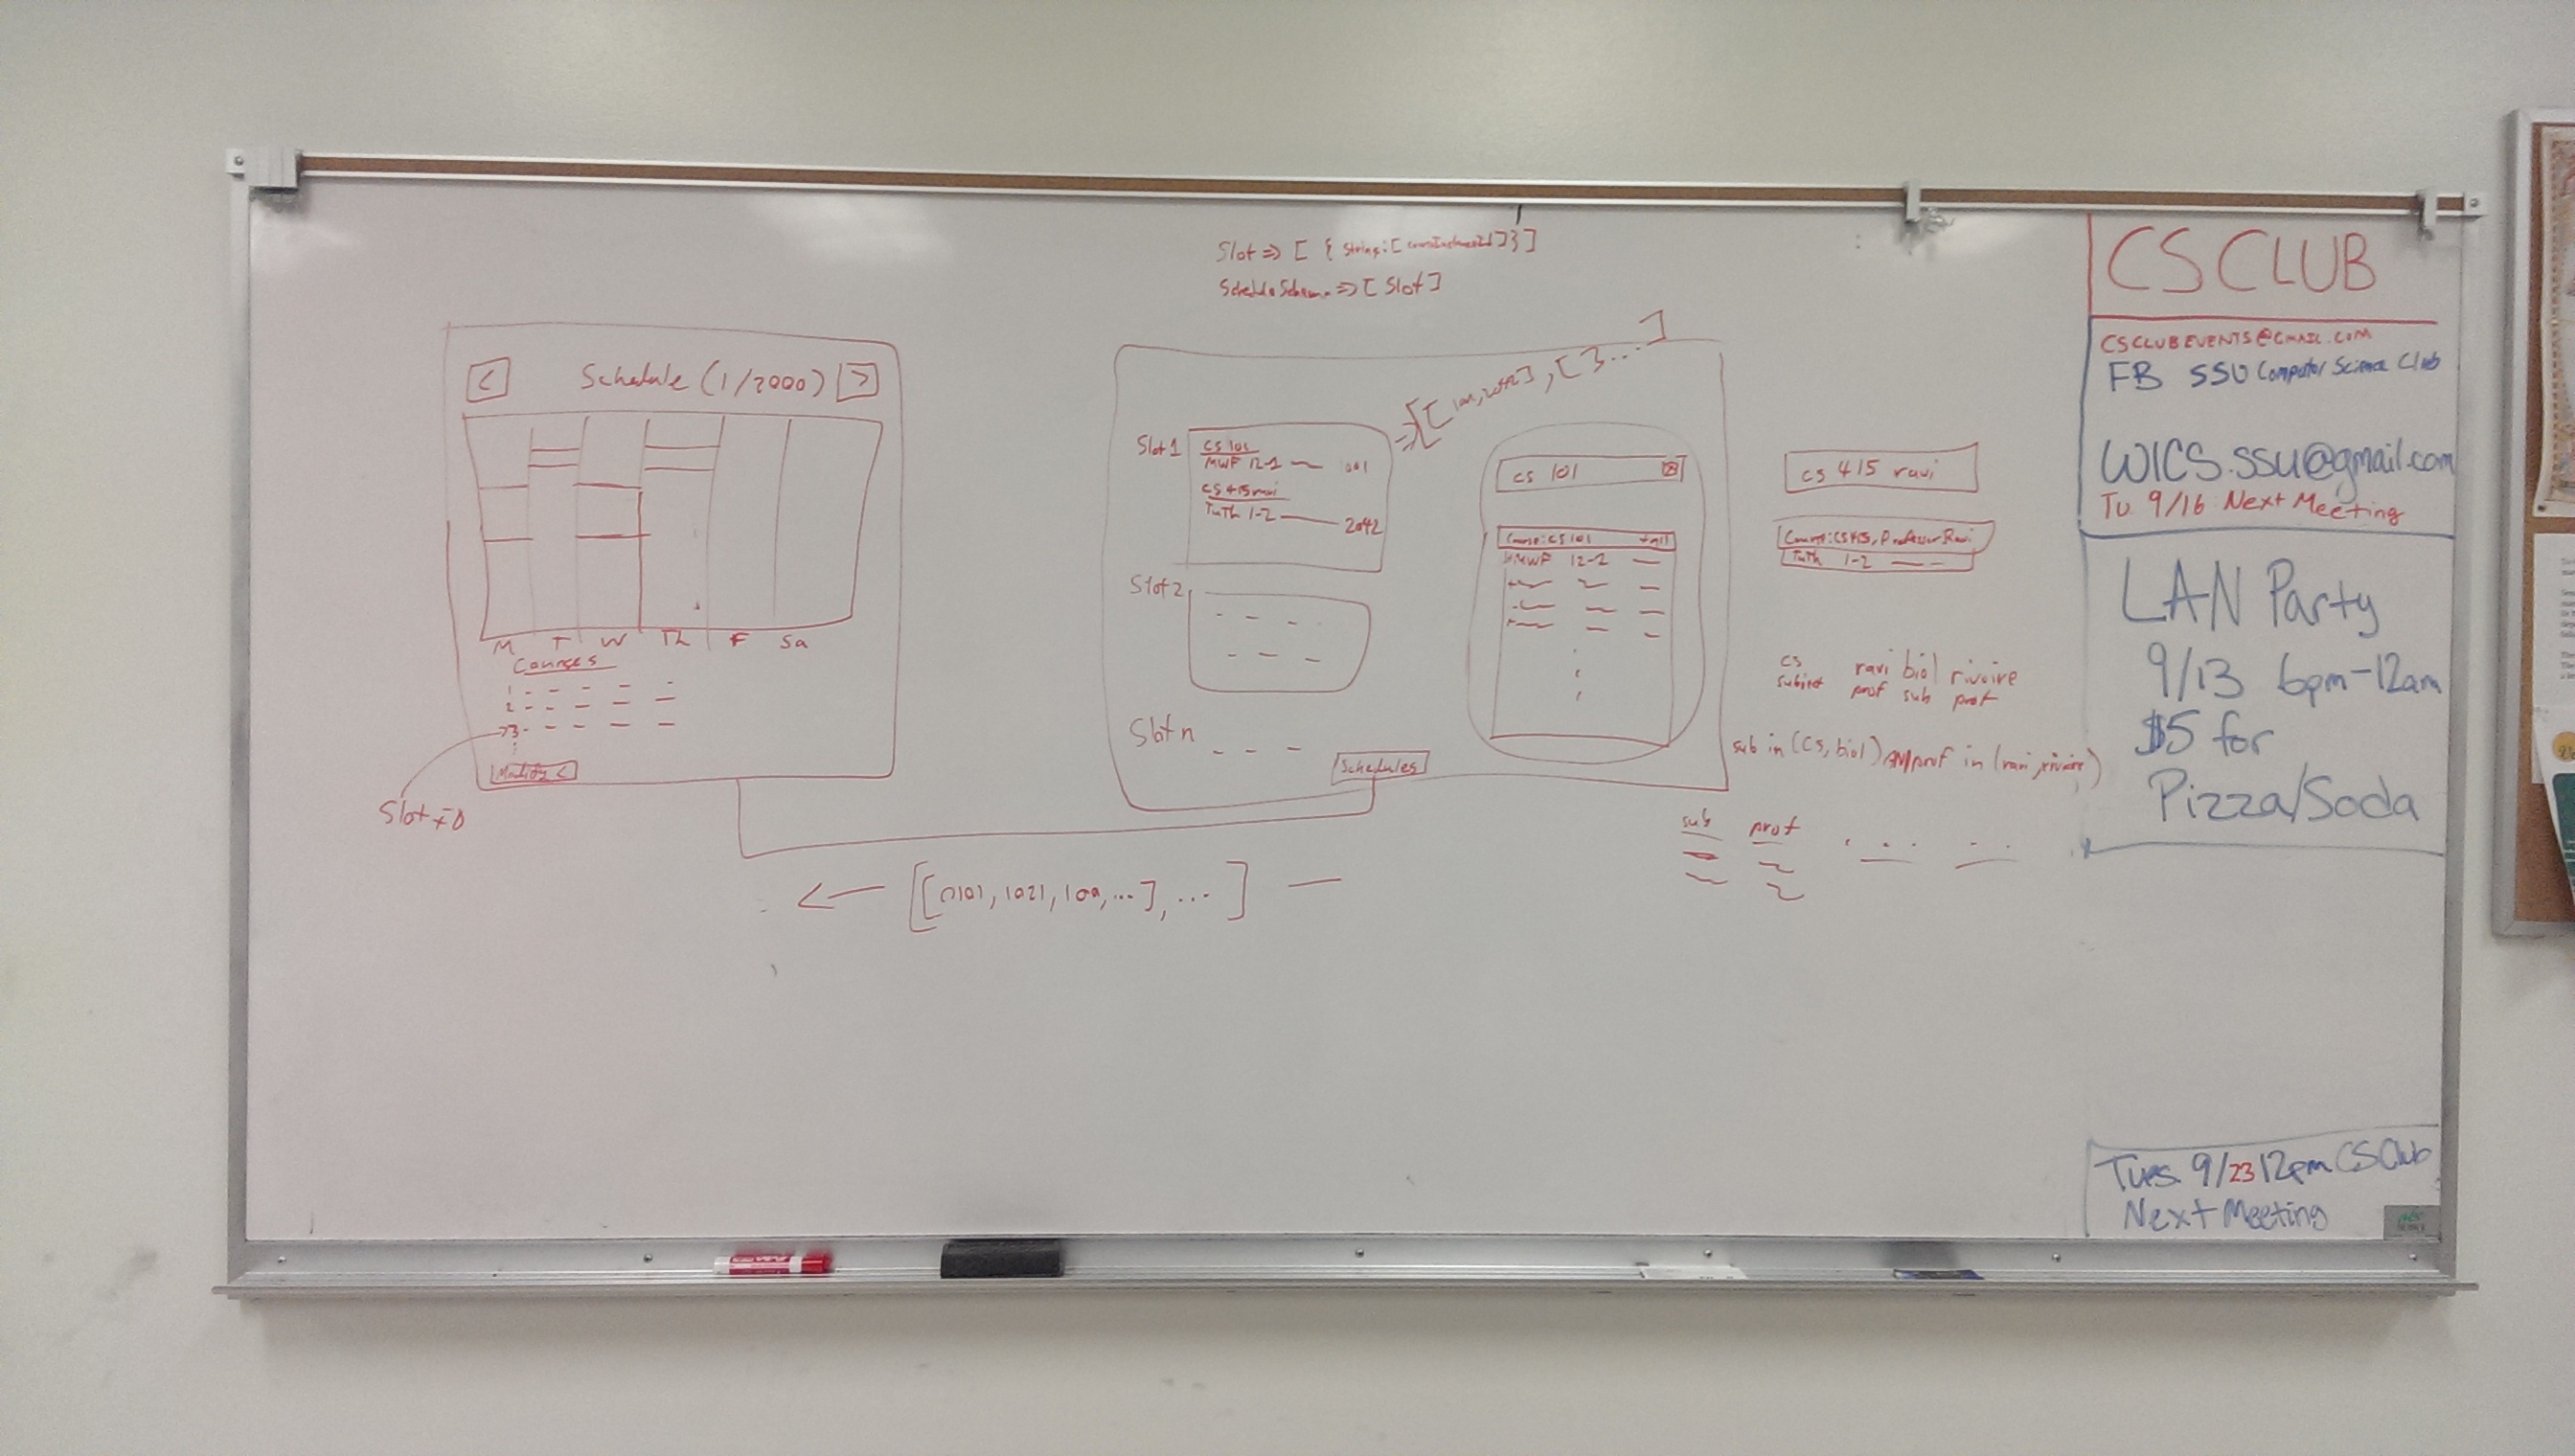 Slot => [ { String: [ courseInstanceId ] } ]
=> [ Slot ]
< Schedule (1/2000) >
M T W Th F Sa
Courses
1
2
3
Modify <
Slot
=> [ [ , 2042 ] , [ 3 .... ]
Slot 1
CS 101
MWF 12-1 001
CS 415 ravi
TuTh 1-2 2042
Slot 2
Slot n
Schedules
cs 101
Course: CS 101 + all
MWF 12-1
cs 415 ravi
Course: CS415, Professor Ravi
TuTh 1-2
cs ravi biol rivoire
subject prof sub prof
sub in (CS, biol) AND prof in (ravi, rivoire)
sub prof
<— [ [ 0101, 1021, 109, ... ] , ... ] —
CS CLUB
CSCLUBEVENTS@GMAIL.COM
FB SSU Computer Science Club
WICS.SSU@gmail.com
Tu 9/16 Next Meeting
LAN Party
9/13 6pm-12am
$5 for
Pizza/Soda
Tues 9/23 12pm CS Club
Next Meeting